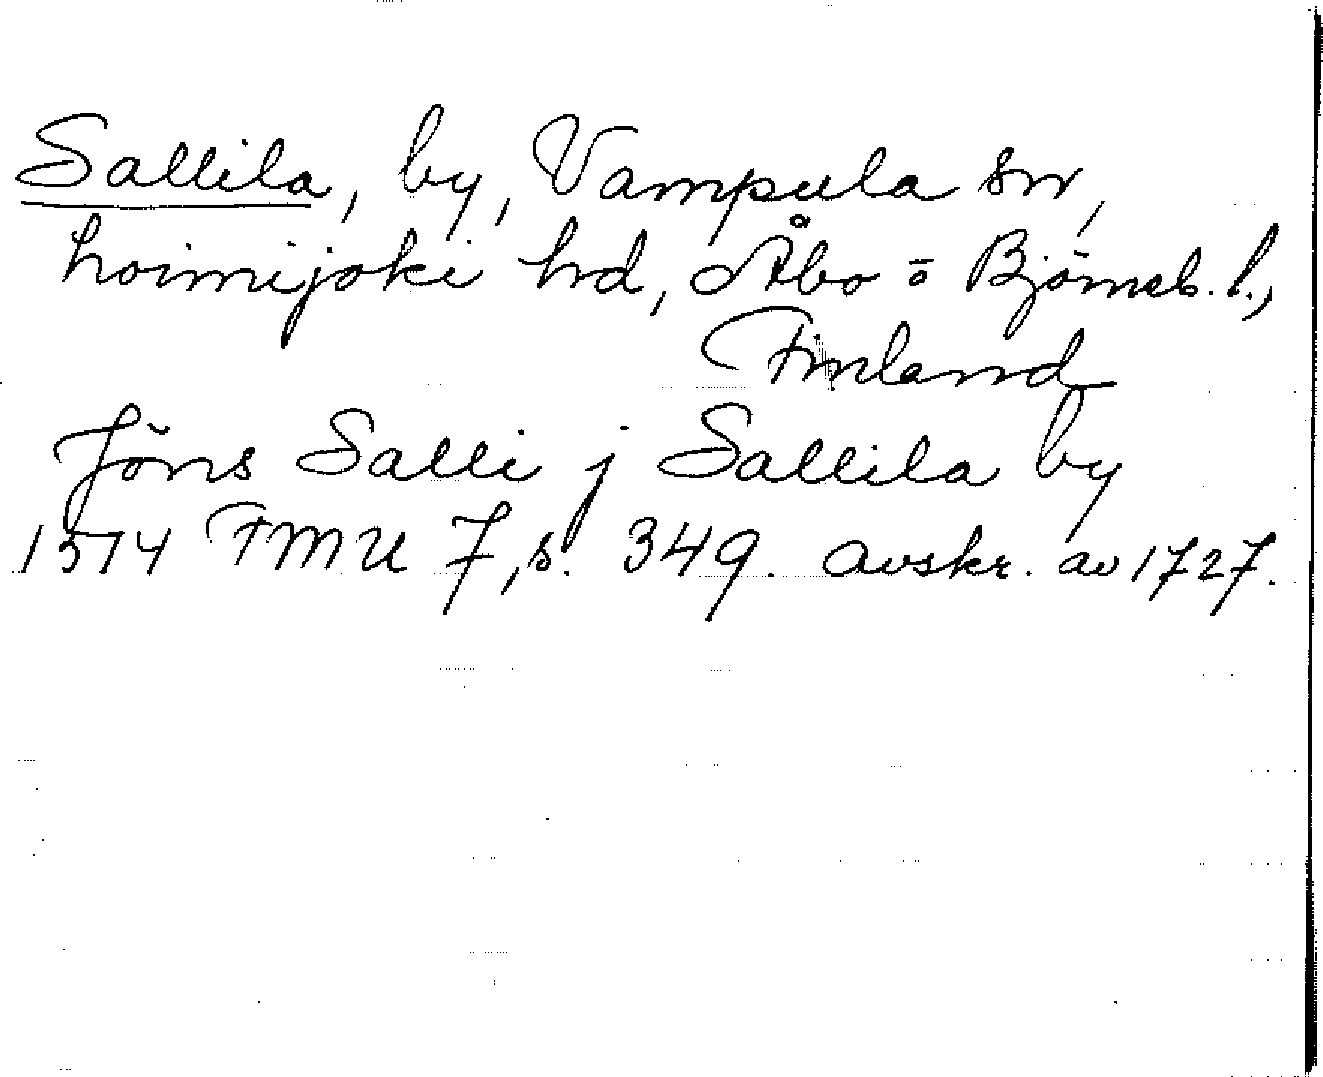 Sallila, by, Vampula sn,
Loimijoki hd, Åbo o Björneb. l.,
Finland
Jöns Salli j Sallila by
1514 FMU 7, s. 349. avskr. av 1727.